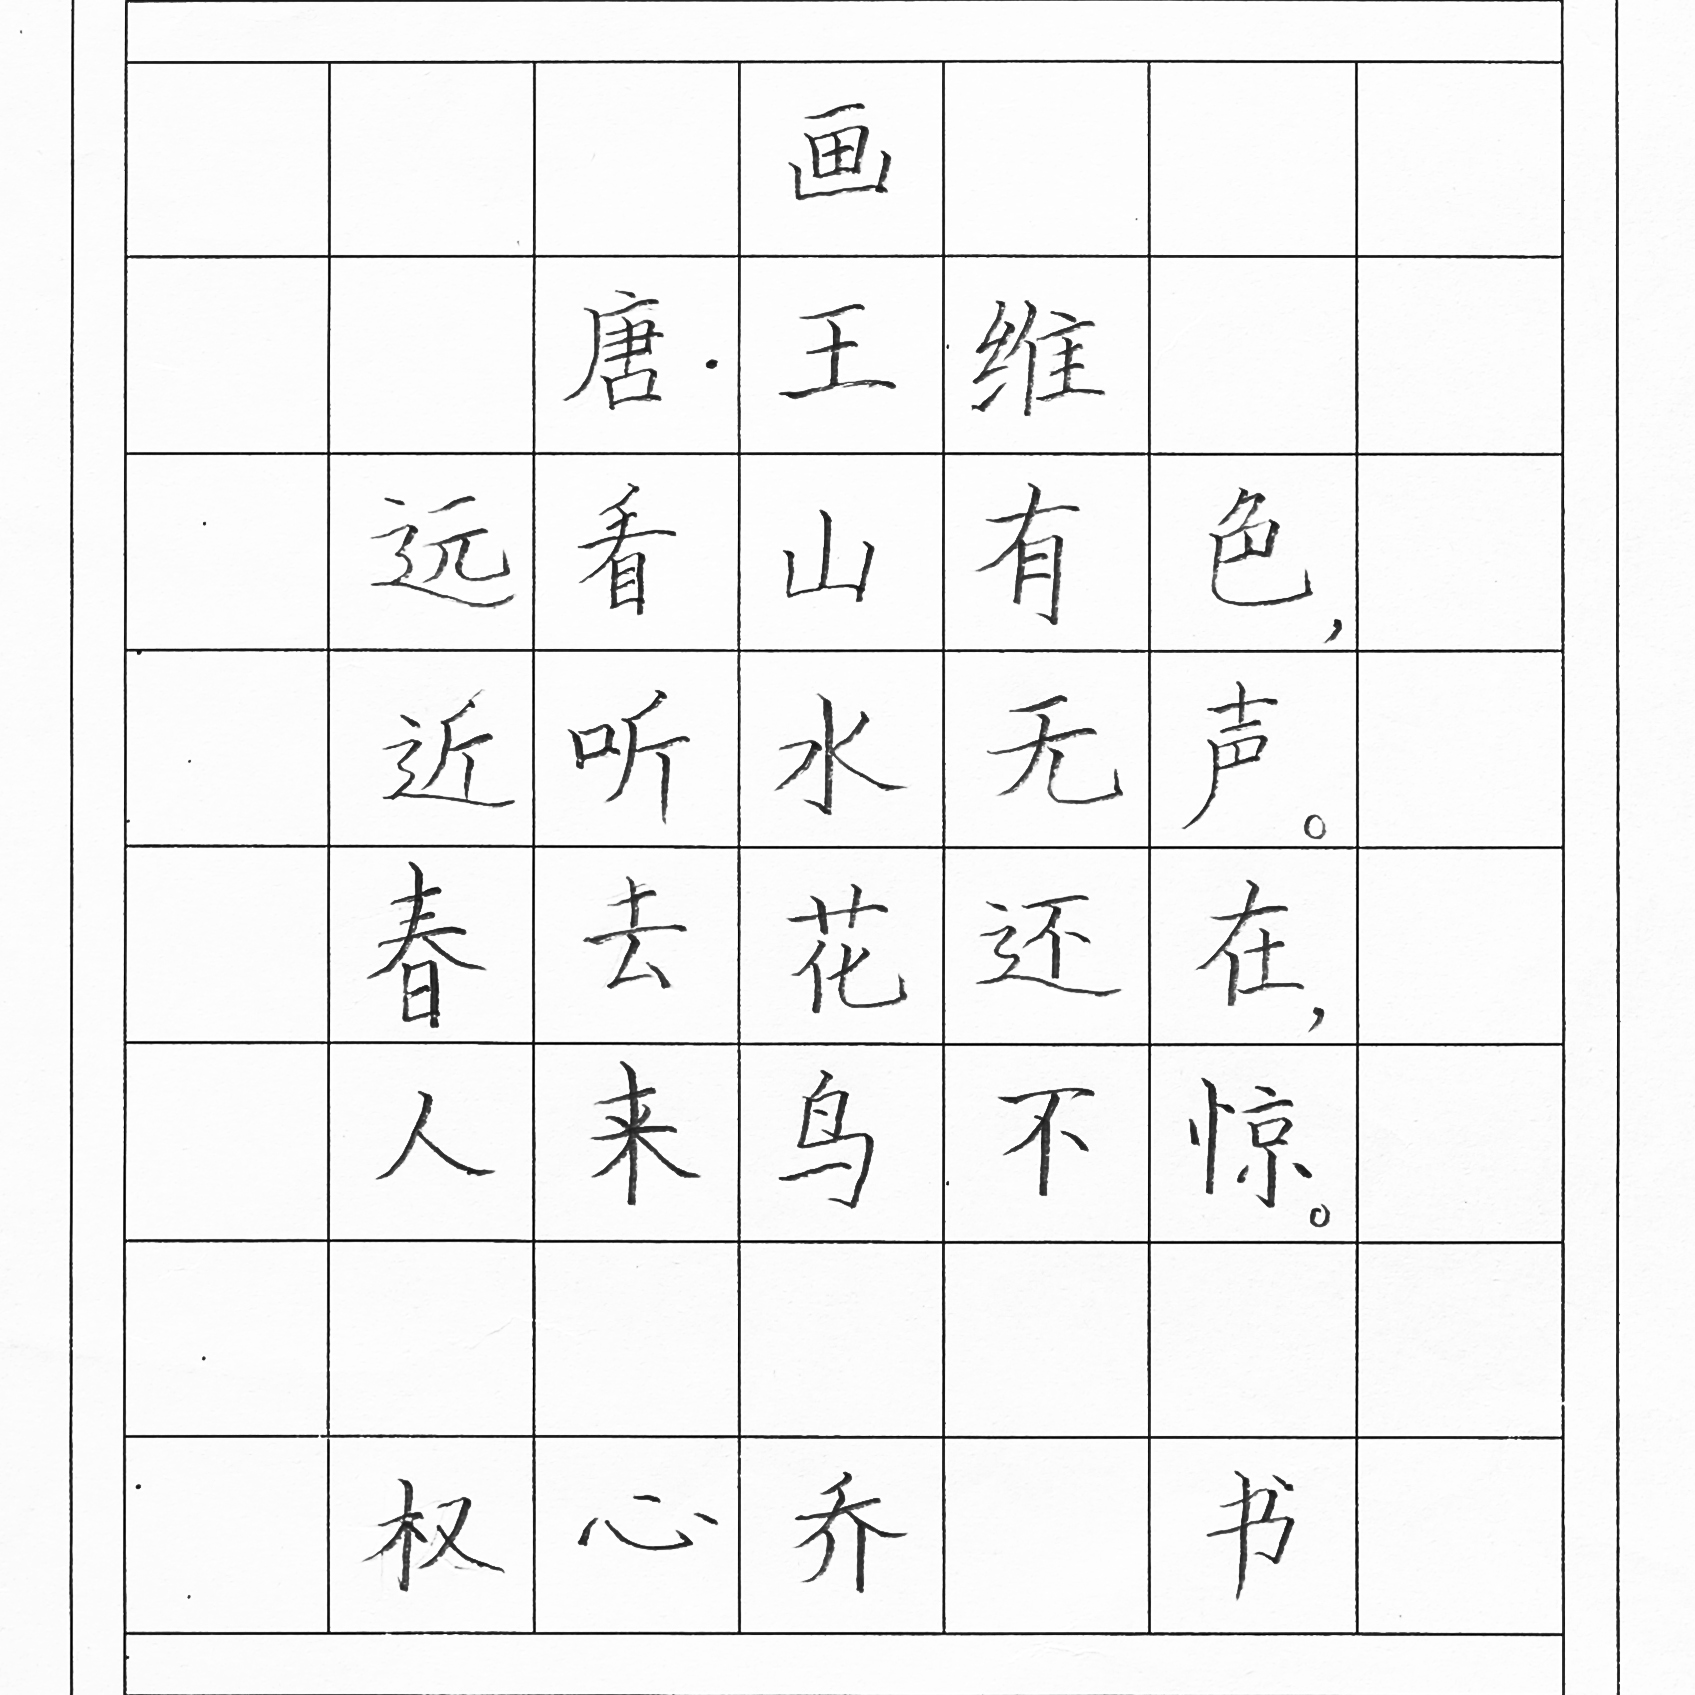 画
唐·王维
远看山有色,
近听水无声。
春去花还在,
人来鸟不惊。
权心乔 书